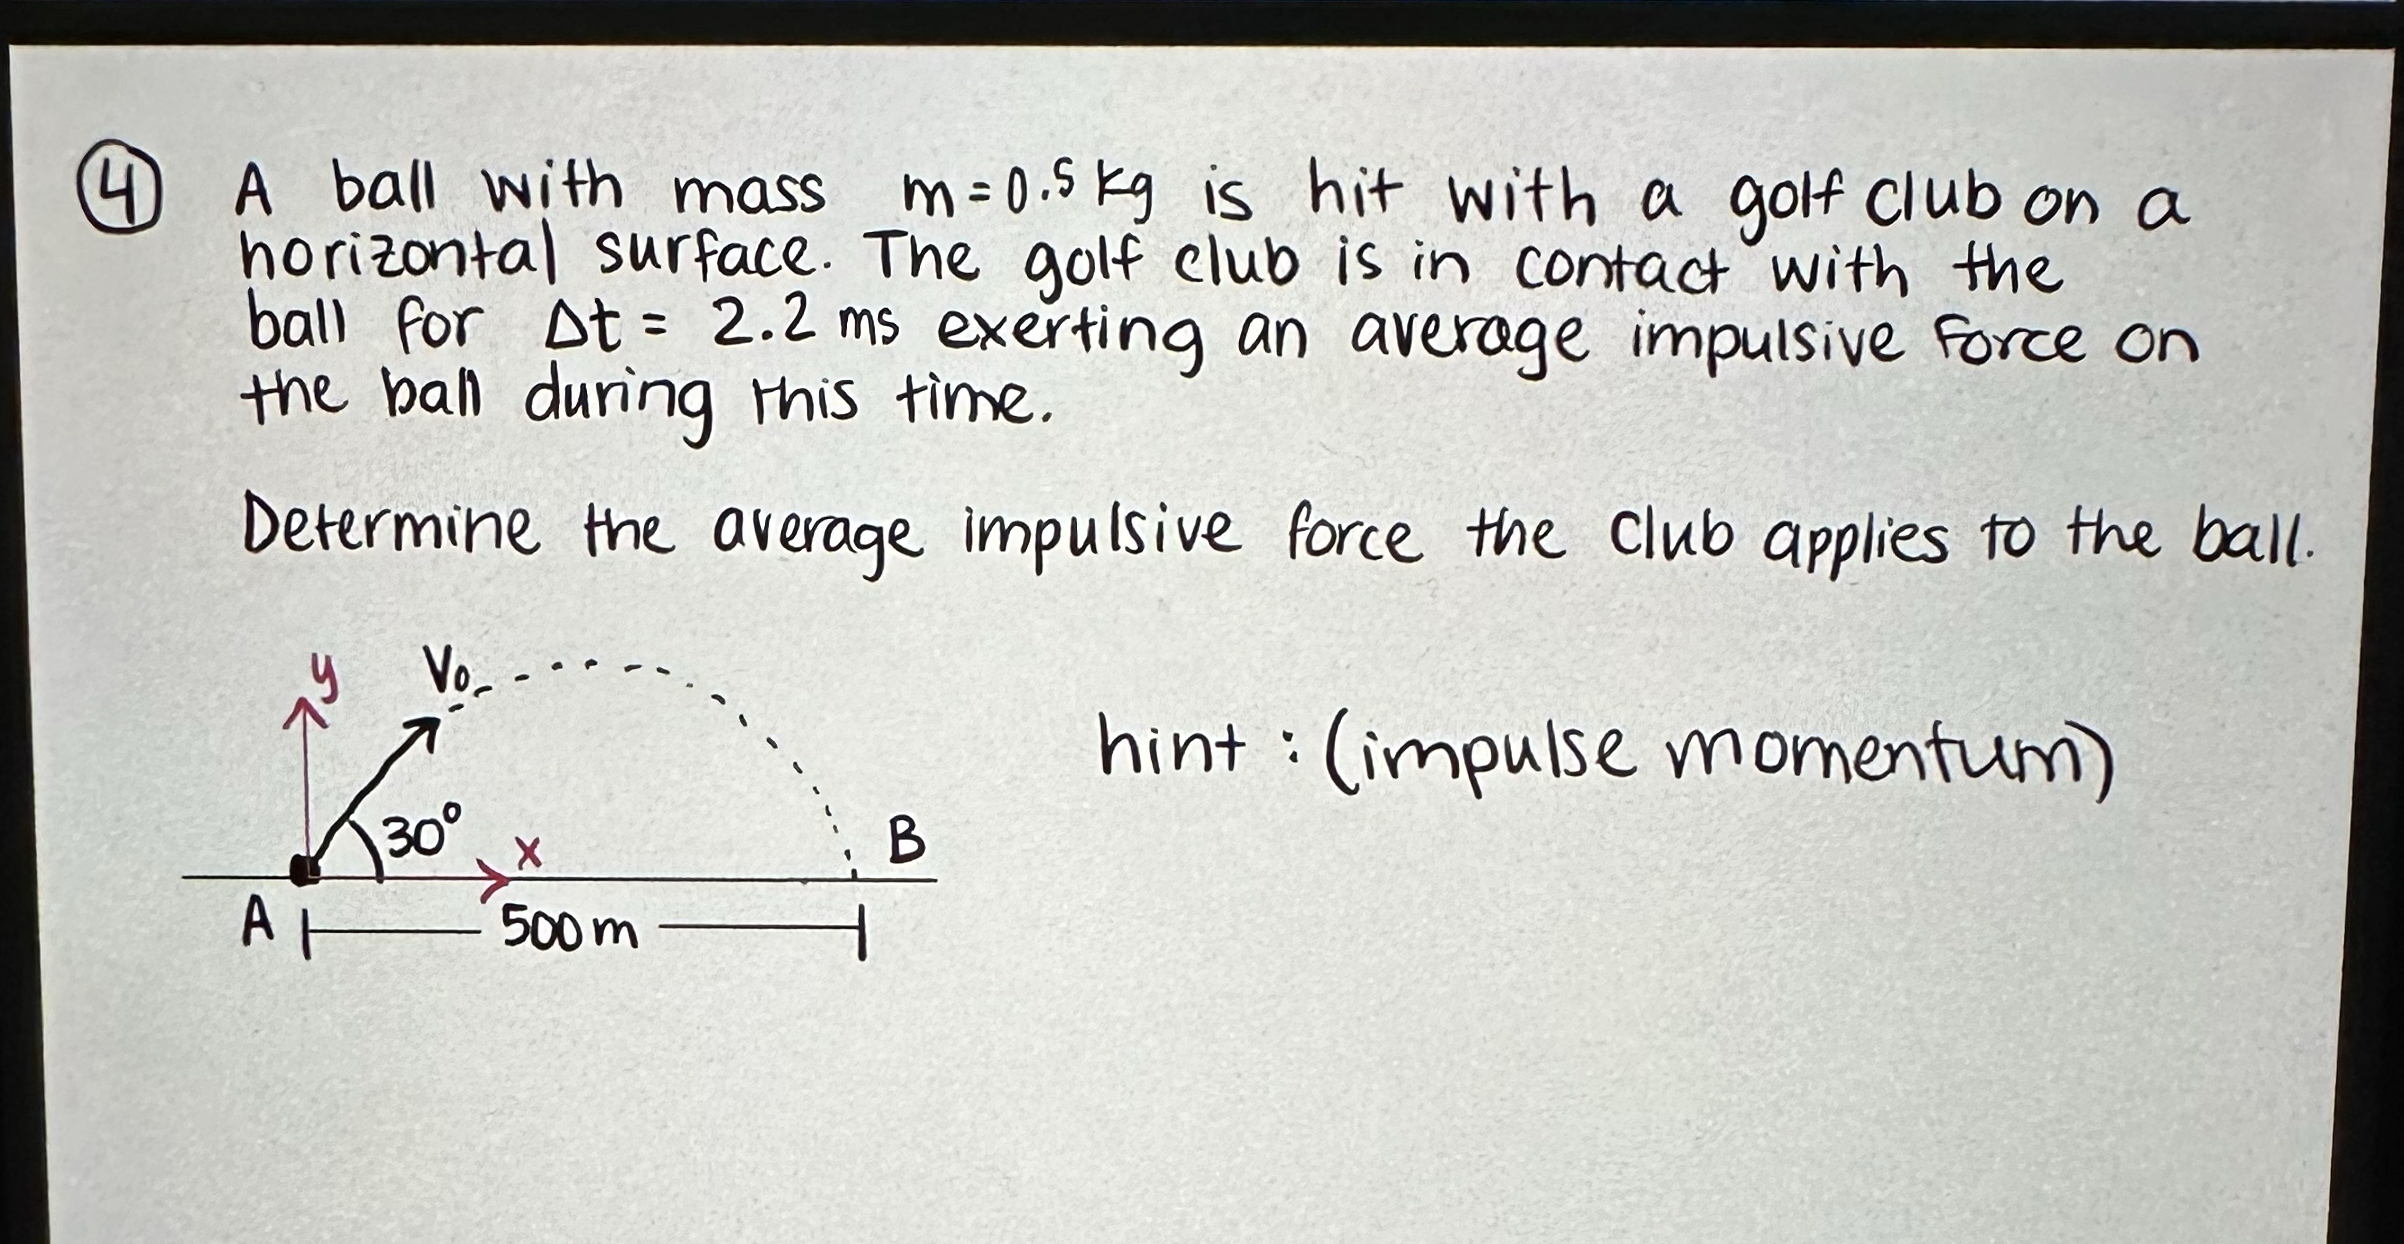 4 A ball with mass m=0.5 kg is hit with a golf club on a
horizontal surface. The golf club is in contact with the
ball for Δt = 2.2 ms exerting an average impulsive force on
the ball during this time.
Determine the average impulsive force the club applies to the ball.
y
V₀
hint : (impulse momentum)
30°
x
B
A
500 m